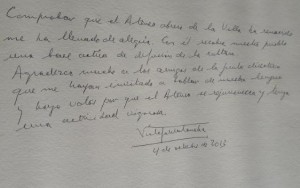 Comprobar que el Ateneo obrero de la Valla ha renacido
me ha llenado de alegría. Con él nuestro pueblo
una base activa de difusión de la cultura.
Agradezco mucho a los amigos de la junta directiva
que me hayan invitado a hablar de nuestra lengua
y hago votos por que el Ateneo se rejuvenezca y tenga
una actividad vigorosa.
4 de octubre de 2013